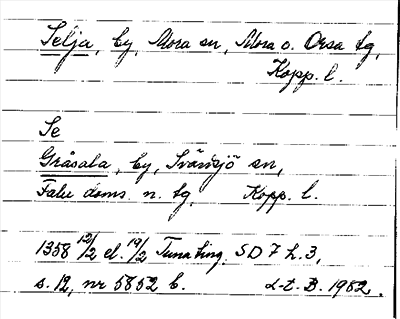 Selja, by, Mora sn, Mora o. Orsa tg,
Kopp. l.
Se
Gråsala, by, Svärdsjö sn,
Falu doms. n. tg, Kopp. l.
1358 12/2 el. 19/2 Tuna ting. SD 7 h. 3,
s. 12, nr 5852 b. L-t. B. 1982.